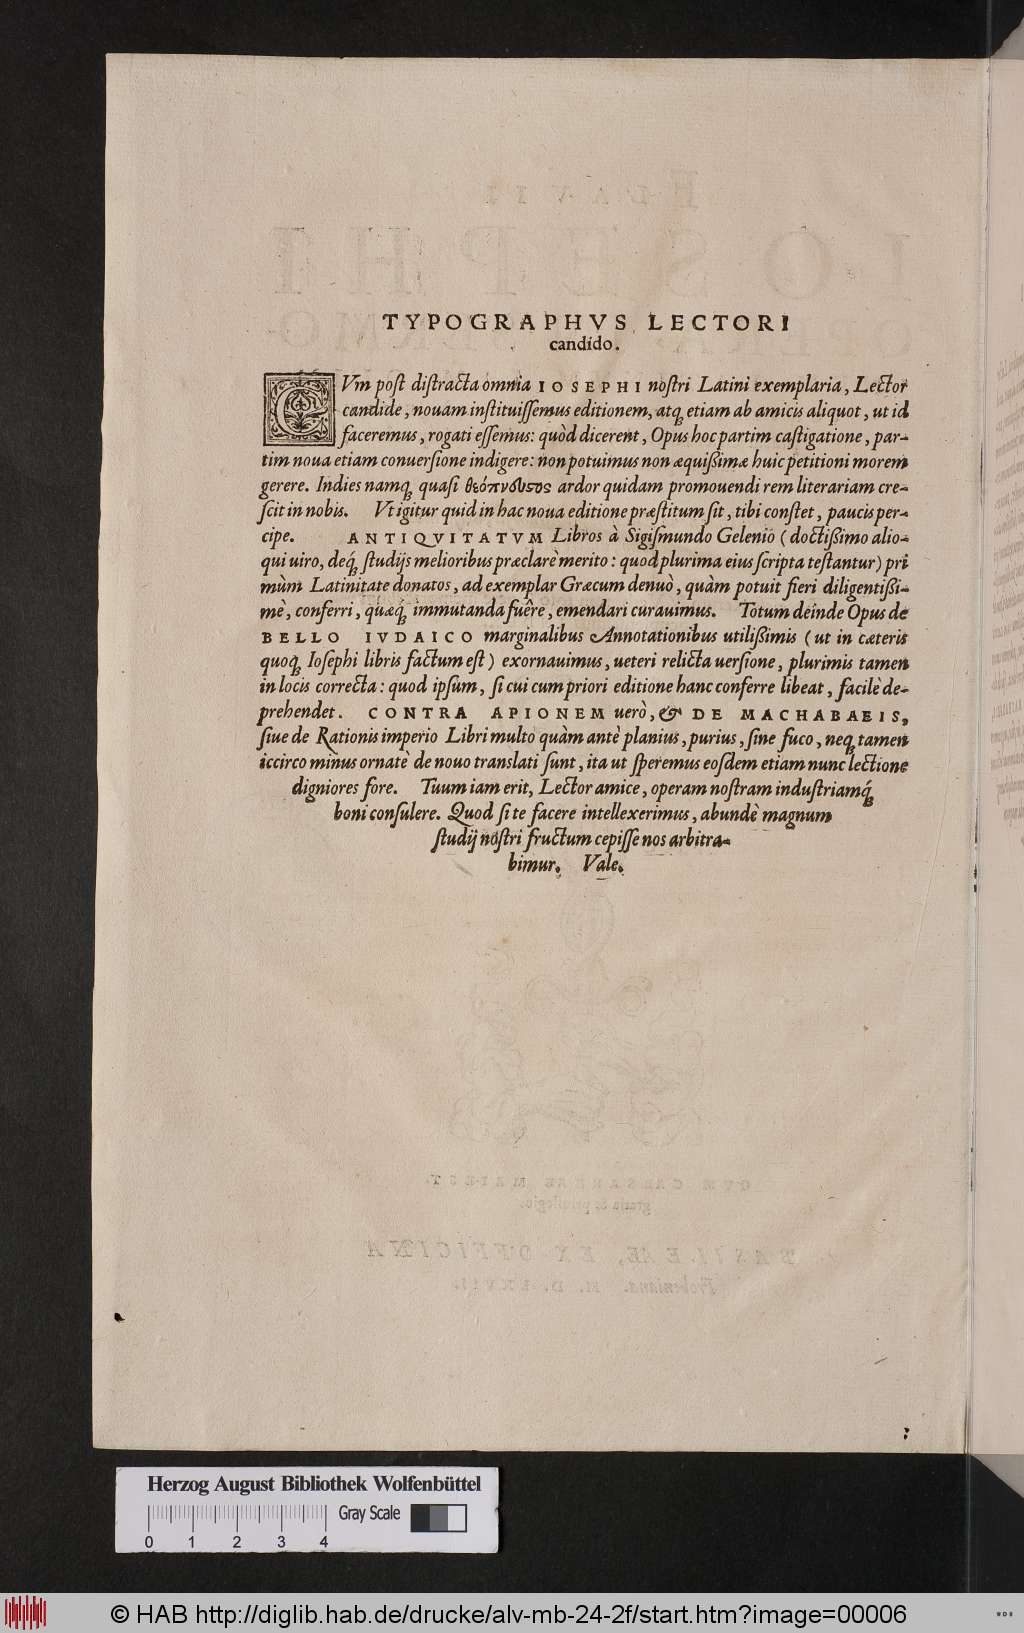 TYPOGRAPHVS LECTORI
candido.
CVm post distracta omnia IOSEPHI nostri Latini exemplaria, Lector
candide, nouam instituissemus editionem, atq; etiam ab amicis aliquot, ut id
faceremus, rogati essemus: quòd dicerent, Opus hoc partim castigatione, par-
tim noua etiam conuersione indigere: non potuimus non æquißimæ huic petitioni morem
gerere. Indies namq; quasi θεόπνευστος ardor quidam promouendi rem literariam cre-
scit in nobis. Vt igitur quid in hac noua editione præstitum sit, tibi constet, paucis per-
cipe. ANTIQVITATVM Libros à Sigismundo Gelenio (doctißimo alio-
qui uiro, deq́; studijs melioribus præclarè merito: quod plurima eius scripta testantur) pri
mùm Latinitate donatos, ad exemplar Græcum denuò, quàm potuit fieri diligentißi-
mè, conferri, quæq́; immutanda fuêre, emendari curauimus. Totum deinde Opus de
BELLO IVDAICO marginalibus Annotationibus utilißimis (ut in cæteris
quoq; Iosephi libris factum est) exornauimus, ueteri relicta uersione, plurimis tamen
in locis correcta: quod ipsum, si cui cum priori editione hanc conferre libeat, facilè de-
prehendet. CONTRA APIONEM uerò, & DE MACHABAEIS,
siue de Rationis imperio Libri multo quàm antè planius, purius, sine fuco, neq; tamen
iccirco minus ornatè de nouo translati sunt, ita ut speremus eosdem etiam nunc lectione
digniores fore. Tuum iam erit, Lector amice, operam nostram industriamq́;
boni consulere. Quod si te facere intellexerimus, abundè magnum
studij nostri fructum cepisse nos arbitra-
bimur. Vale.
Herzog August Bibliothek Wolfenbüttel
Gray Scale
0 1 2 3 4
© HAB http://diglib.hab.de/drucke/alv-mb-24-2f/start.htm?image=00006